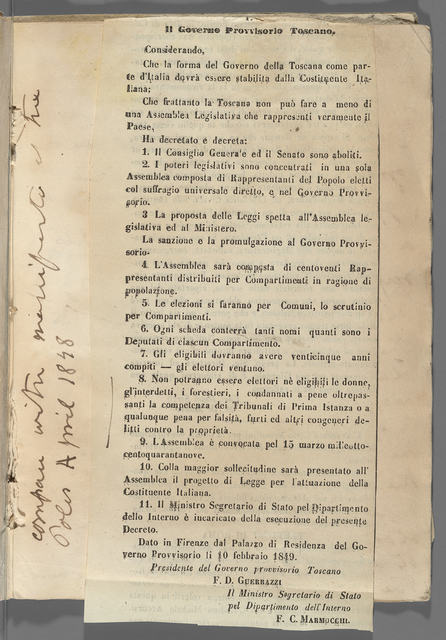 Il Governo Provvisorio Toscano,
Considerando,
Che la forma del Governo della Toscana come par-
te d'Italia dovrà essere stabilita dalla Costituente Ita-
liana;
Che frattanto la Toscana non può fare a meno di
una Assemblea Legislativa che rappresenti veramente il
Paese,
Ha decretato e decreta:
1. Il Consiglio Generale ed il Senato sono aboliti.
2. I poteri legislativi sono concentrati in una sola
Assemblea composta di Rappresentanti del Popolo eletti
col suffragio universale diretto, e nel Governo Provvi-
sorio.
3 La proposta delle Leggi spetta all'Assemblea le-
gislativa ed al Ministero.
La sanzione e la promulgazione al Governo Provvi-
sorio.
4. L'Assemblea sarà composta di centoventi Rap-
presentanti distribuiti per Compartimenti in ragione di
popolazione.
5. Le elezioni si faranno per Comuni, lo scrutinio
per Compartimenti.
6. Ogni scheda conterrà tanti nomi quanti sono i
Deputati di ciascun Compartimento.
7. Gli eligibili dovranno avere venticinque anni
compiti — gli elettori ventuno.
8. Non potranno essere elettori nè eligibili le donne,
gl'interdetti, i forestieri, i condannati a pene oltrepas-
santi la competenza dei Tribunali di Prima Istanza o a
qualunque pena per falsità, furti ed altri congeneri de-
litti contro la proprietà.
9. L'Assemblea è convocata pel 15 marzo milleotto-
centoquarantanove.
10. Colla maggior sollecitudine sarà presentato all'
Assemblea il progetto di Legge per l'attuazione della
Costituente Italiana.
11. Il Ministro Segretario di Stato pel Dipartimento
dello Interno è incaricato della esecuzione del presente
Decreto.
Dato in Firenze dal Palazzo di Residenza del Go-
verno Provvisorio li 10 febbraio 1849.
Presidente del Governo provvisorio Toscano
F. D. Guerrazzi
Il Ministro Segretario di Stato
pel Dipartimento dell'Interno
F. C. Marmocchi.
compare with manifesto of the
Poles April 1848